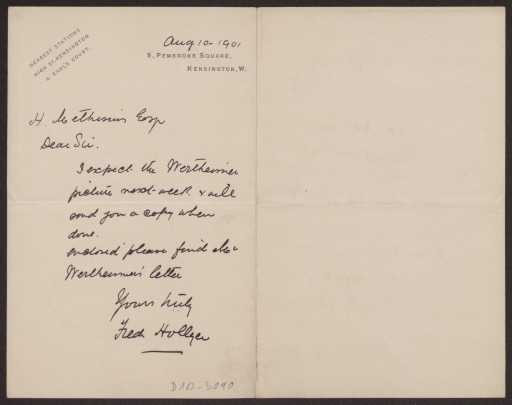 NEAREST STATIONS
HIGH ST. KENSINGTON
& EARLS COURT.
Aug 10 1901
9, PEMBROKE SQUARE,
KENSINGTON, W.
H. Esqr
Dear Sir.
I expect the Wertheimer
picture next week & will
send you a copy when
done.
enclosed please find Mr
Wertheimer's letter
Yours truly
Fred Hollyer